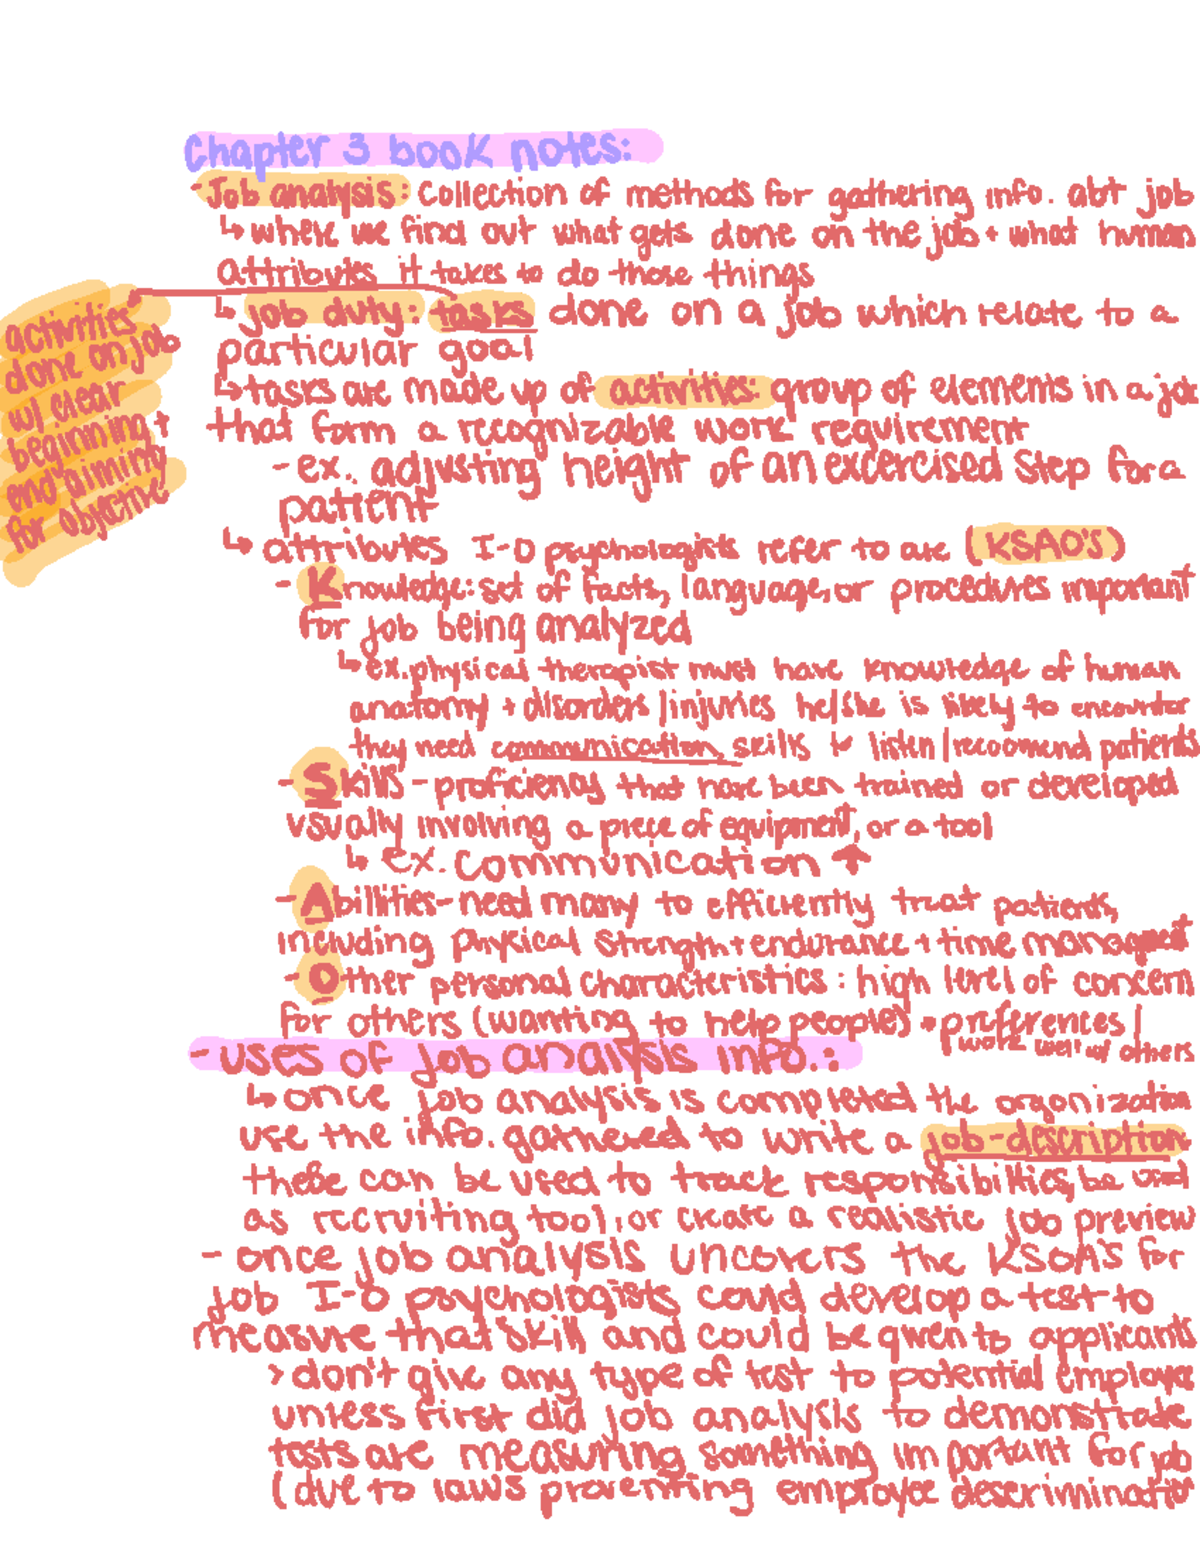 Chapter 3 book notes:
-Job analysis: Collection of methods for gathering info. abt job
↳ where we find out what gets done on the job + what human
attributes it takes to do those things
↳ job duty: tasks done on a job which relate to a
particular goal
activities
done on job
w/ clear
beginning +
end aiming
for objective
↳ tasks are made up of activities: group of elements in a job
that form a recognizable work requirement
- ex. adjusting height of an excercised step for a
patient
↳ attributes I-O psychologists refer to are (KSAO's)
- Knowledge: set of facts, language, or procedures important
for job being analyzed
↳ ex. physical therapist must have knowledge of human
anatomy + disorders/injuries he/she is likely to encounter
they need communication skills to listen/recoomend patients
- Skills - proficiency that have been trained or developed
usually involving a piece of equipment, or a tool
↳ ex. communication ↑
- Abillities - need many to efficiently treat patients,
including physical strength + endurance + time managment
- Other personal characteristics: high level of concern
for others (wanting to help people) + preferences/
work well w/ others
- uses of job analysis info.:
↳ once job analysis is completed the organization
use the info. gathered to write a job-description
these can be used to track responsibilities, be used
as recruiting tool, or create a realistic job preview
- once job analysis uncovers the KSOA's for
job I-O psychologists could develop a test to
measure that skill and could be given to applicants
> don't give any type of test to potential employee
unless first did job analysis to demonstrate
tests are measuring something important for job
(due to laws preventing employee